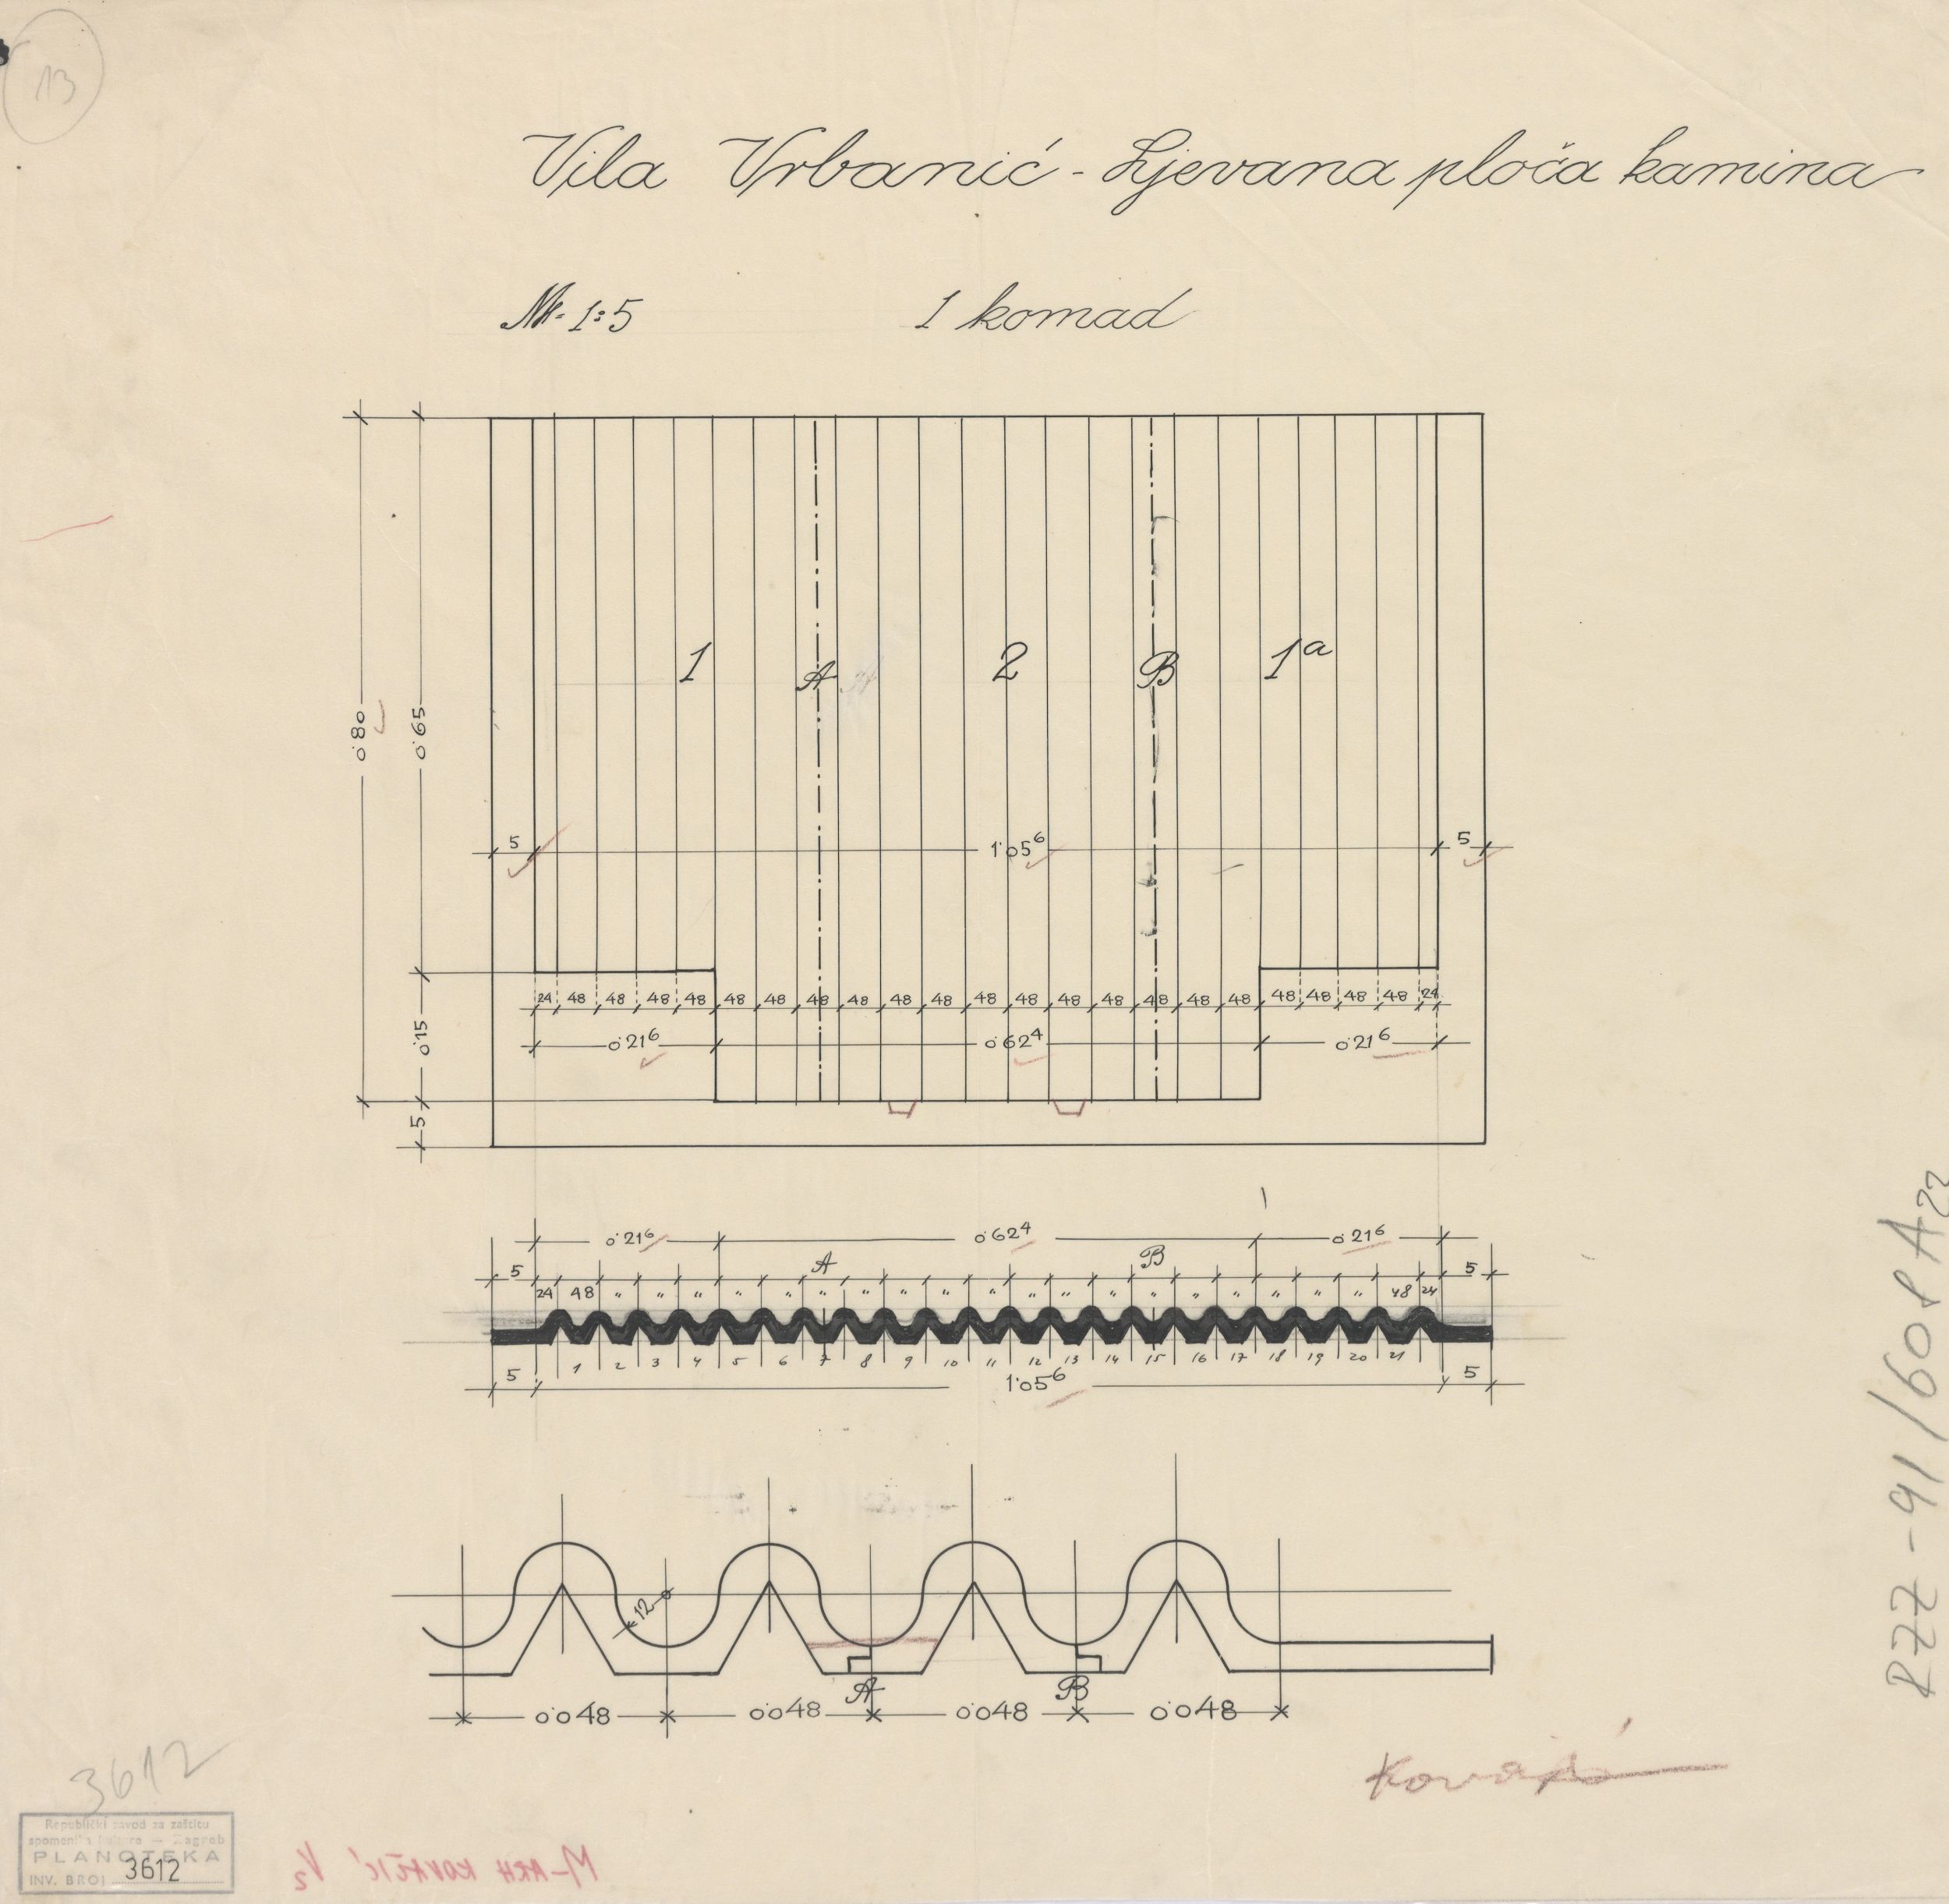 13
Vila Vrbanić - Ljevana ploča kamina
M. 1:5
1 komad
1 A 2 B 1a
0˙80
0˙65
5 1˙05⁶ 5
24 48 48 48 48 48 48 48 48 48 48 48 48 48 48 48 48 48 48 48 48 48 24
0˙21⁶ 0˙62⁴ 0˙21⁶
0˙15
5
0˙21⁶ 0˙62⁴ 0˙21⁶
A B
5 5
24 48 " " " " " " " " " " " " " " " " " " " 48 24
1 2 3 4 5 6 7 8 9 10 11 12 13 14 15 16 17 18 19 20 21
5 1˙05⁶ 5
12
A B
0˙048 0˙048 0˙048 0˙048
Kovačić
RZZ-91/608 A22
3612
Republički zavod za zaštitu
spomenika kulture — Zagreb
PLANOTEKA
INV. BROJ 3612
M-ARH KOVAČIĆ V2